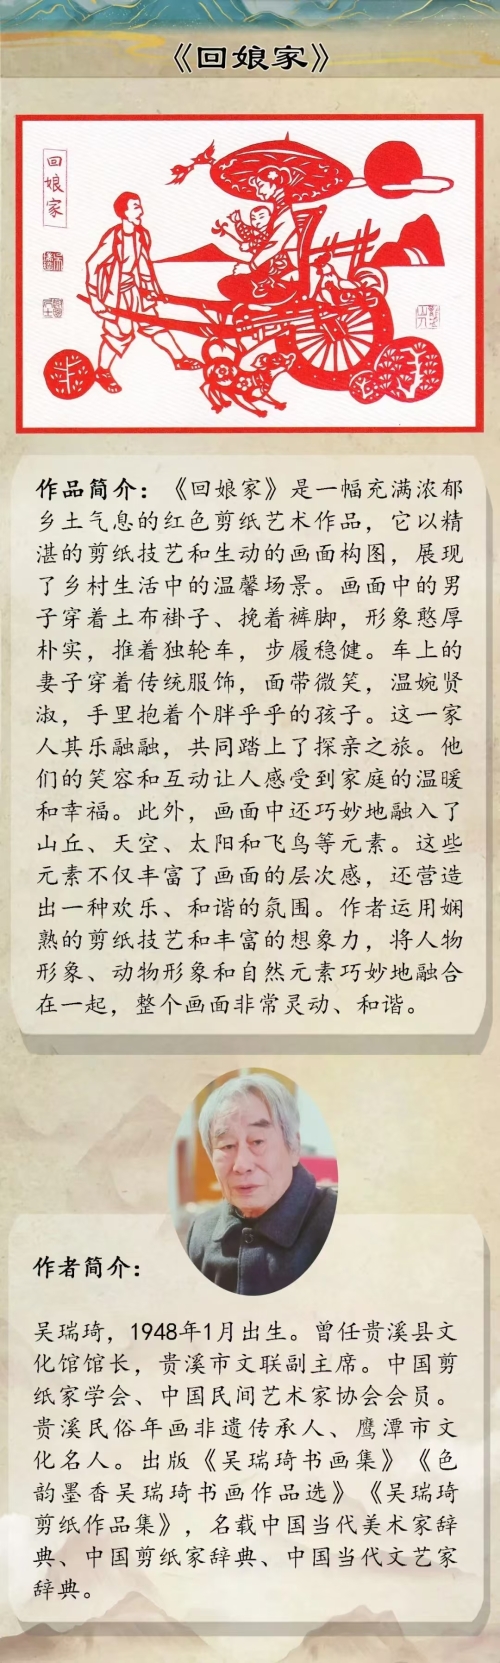 《回娘家》
回娘家
作品简介：《回娘家》是一幅充满浓郁
乡土气息的红色剪纸艺术作品，它以精
湛的剪纸技艺和生动的画面构图，展现
了乡村生活中的温馨场景。画面中的男
子穿着土布褂子、挽着裤脚，形象憨厚
朴实，推着独轮车，步履稳健。车上的
妻子穿着传统服饰，面带微笑，温婉贤
淑，手里抱着个胖乎乎的孩子。这一家
人其乐融融，共同踏上了探亲之旅。他
们的笑容和互动让人感受到家庭的温暖
和幸福。此外，画面中还巧妙地融入了
山丘、天空、太阳和飞鸟等元素。这些
元素不仅丰富了画面的层次感，还营造
出一种欢乐、和谐的氛围。作者运用娴
熟的剪纸技艺和丰富的想象力，将人物
形象、动物形象和自然元素巧妙地融合
在一起，整个画面非常灵动、和谐。
作者简介：
吴瑞琦，1948年1月出生。曾任贵溪县文
化馆馆长，贵溪市文联副主席。中国剪
纸家学会、中国民间艺术家协会会员。
贵溪民俗年画非遗传承人、鹰潭市文
化名人。出版《吴瑞琦书画集》《色
韵墨香吴瑞琦书画作品选》《吴瑞琦
剪纸作品集》，名载中国当代美术家辞
典、中国剪纸家辞典、中国当代文艺家
辞典。